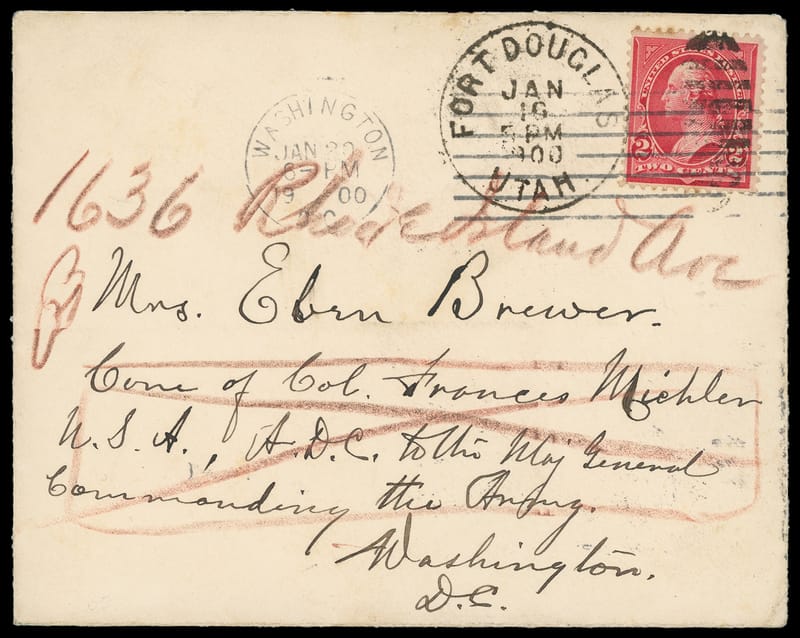 FORT DOUGLAS
JAN
16
5 PM
1900
UTAH
UNITED STATES POSTAGE
2
TWO CENTS
WASHINGTON
JAN 20
6-PM
1900
D.C.
1636 Rhode Island Ave
Mrs. Eben Brewer.
Care of Col. Frances Michler
U.S.A., A.D.C. to the Maj General
Commanding the Army.
Washington.
D.C.